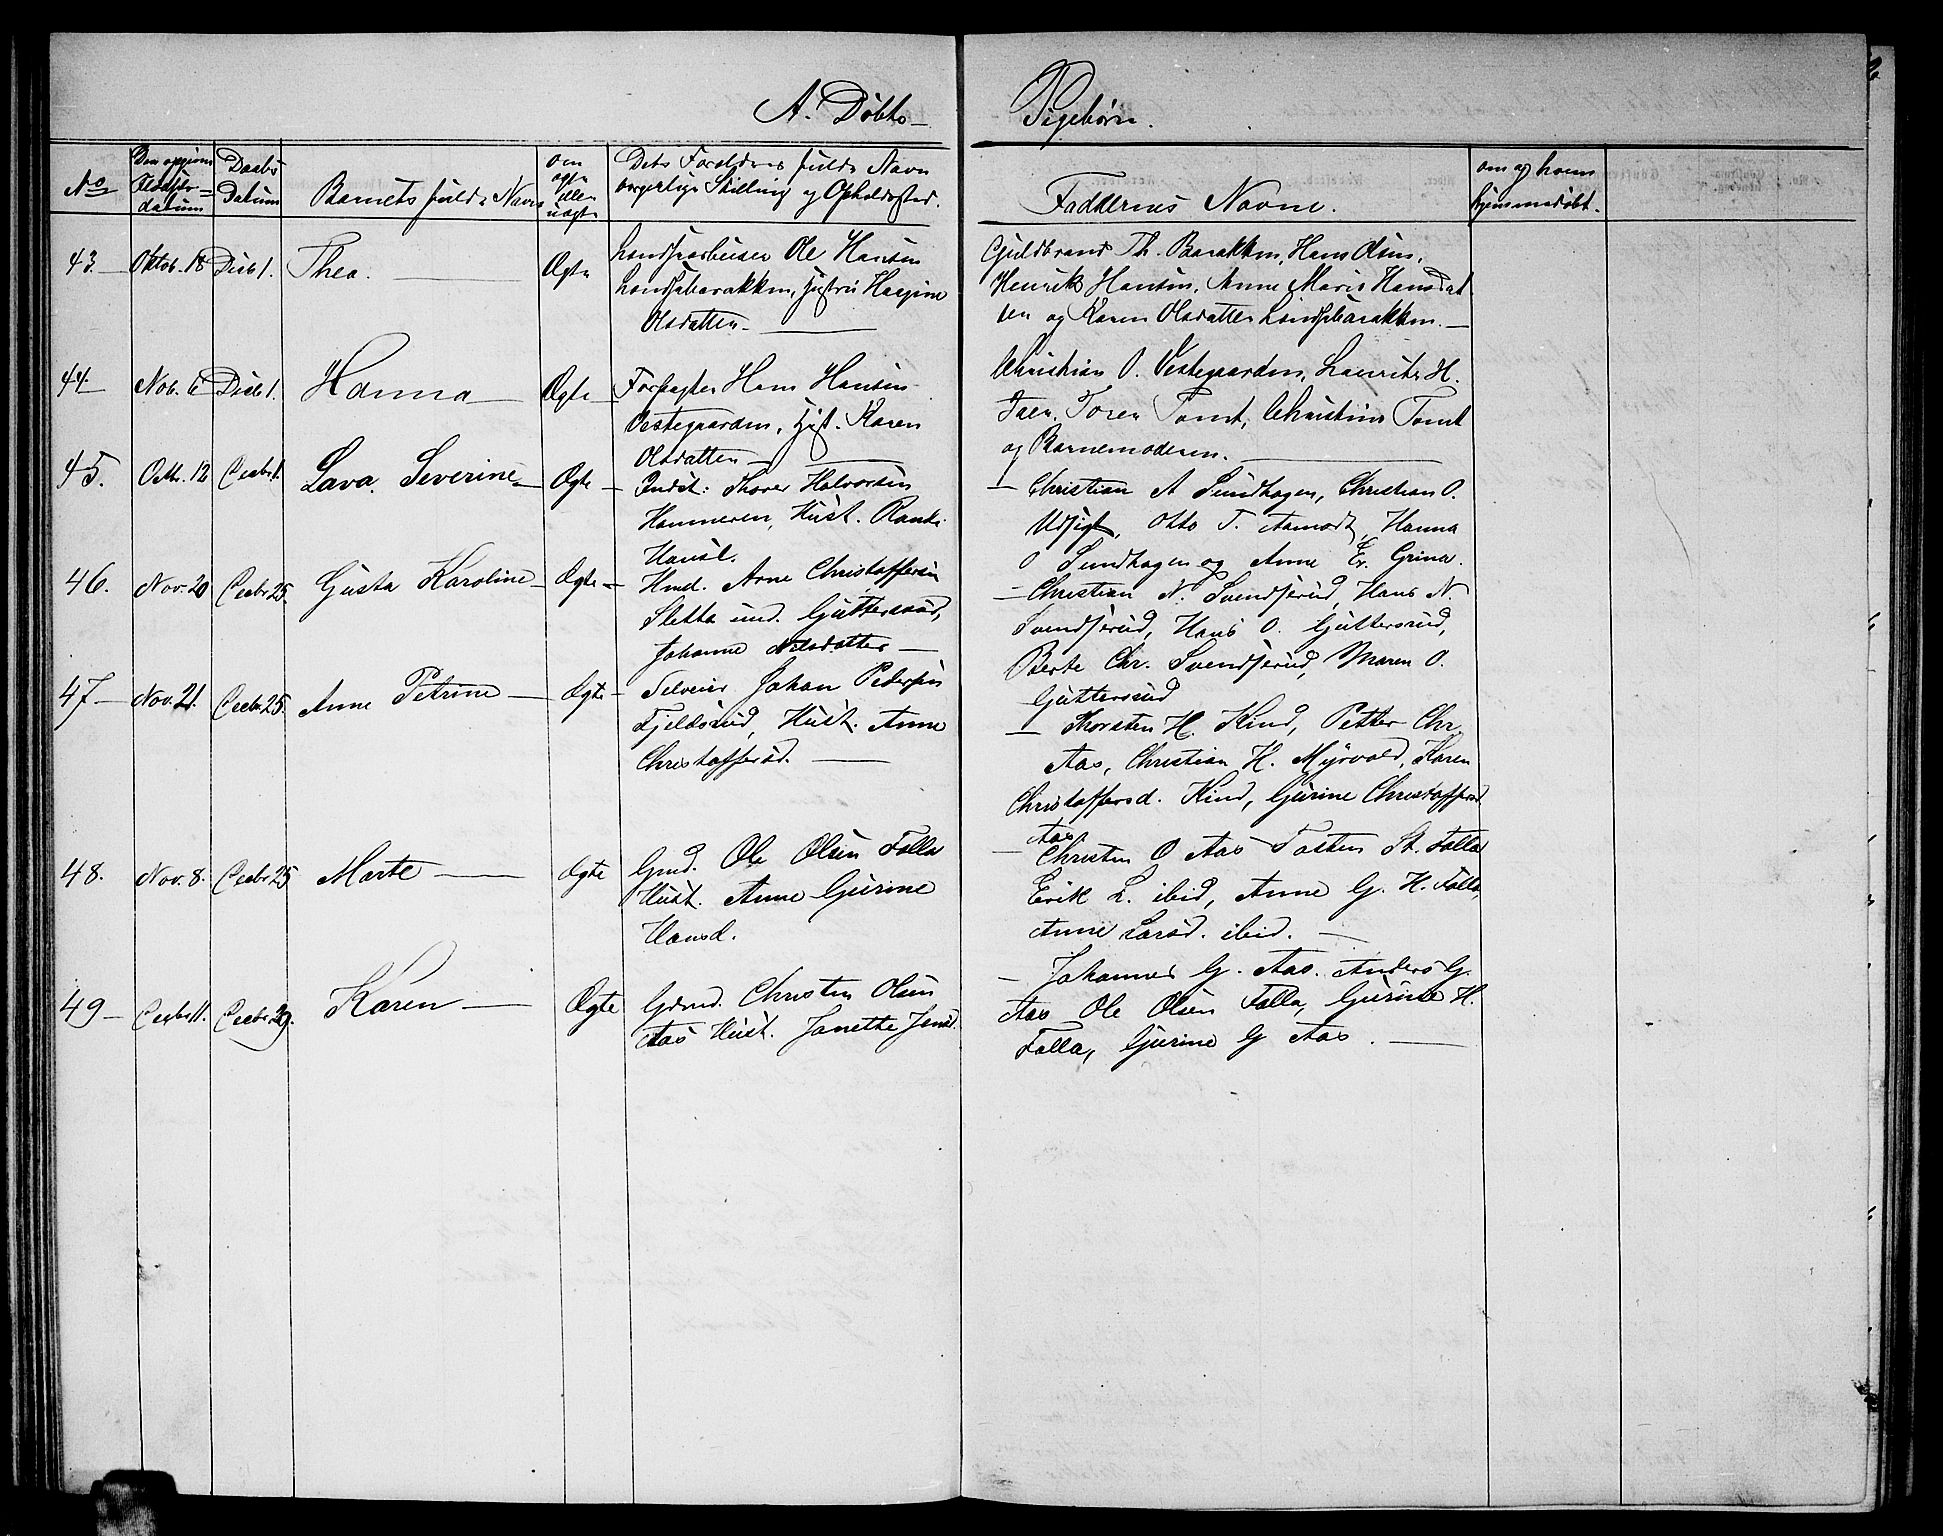 A. Døbte Pigebørn.
No
Den opgivne Fødselsdatum
Daabs Datum
Barnets fulde Navn
om ægte eller uægte
Dets Forældres fulde Navn borgerlige Stilling og Opholdssted.
Faddernes Navne.
om og hvem hjemmedøbt.
43. Oktob. 18 Decb 1. Thea. Ægte
Ole Hansen
Hustru
Olsdatter
Guldbrand Th. Barakken, Hans Olsen,
Henrik Hansen, Anne Marie Hansdat
ter og Karen Olsdatter
44. Nov. 6 Decb 1. Hanna Ægte
Forpagter Hans Hansen
Vestegaarden, Hust. Karen
Olsdatter
Christian O. Vestegaarden, Lauritz H.
Toren Tomt, Christine Tomt
og Barnemoderen.
45. Octb. 12 Decbr 1. Lava Severine Ægte
Indst: Thover Halvorsen
Hammeren, Hust. Randi
Hansd.
Christian A Sundhagen, Christian O.
Udsigt, Otto T. Aamodt, Hanna
O Sundhagen og Anne Er. Grina.
46. Nov. 20 Decbr 25. Gusta Karoline Ægte
Hmd. Arne Christoffersen
Sletta und. Guttersrud,
Johanne Nilsdatter
Christian N. Svendserud, Hans N.
Svendserud, Hans O. Guttersrud,
Berte Chr. Svendserud, Maren O.
Guttersrud
47 Nov. 21. Decbr 25. Anne Petrine Ægte
Selveier Johan Pedersen
Fjeldsrud, Hust. Anne
Christoffersd.
Thorsten H. Kind, Petter Chr.
Aas, Christian H. Myrvold, Karen
Christoffersd. Kind, Gurine Christoffersd
Aas
48. Nov. 8. Decbr 25 Marte Ægte
Gmd. Ole Olsen Falla
Hust. Anne Gurine
Hansd.
Christen O Aas Tosten St. Falla
Erik L. ibid, Anne G. H. Falla,
Anne Larsd. ibid.
49 Decbr 11. Decbr 29. Karen Ægte
Gdmd. Christen Olsen
Aas Hust. Janette Jensd.
Johannes G. Aas. Anders G.
Aas Ole Olsen Falla, Gurine H.
Falla, Gurine G Aas.